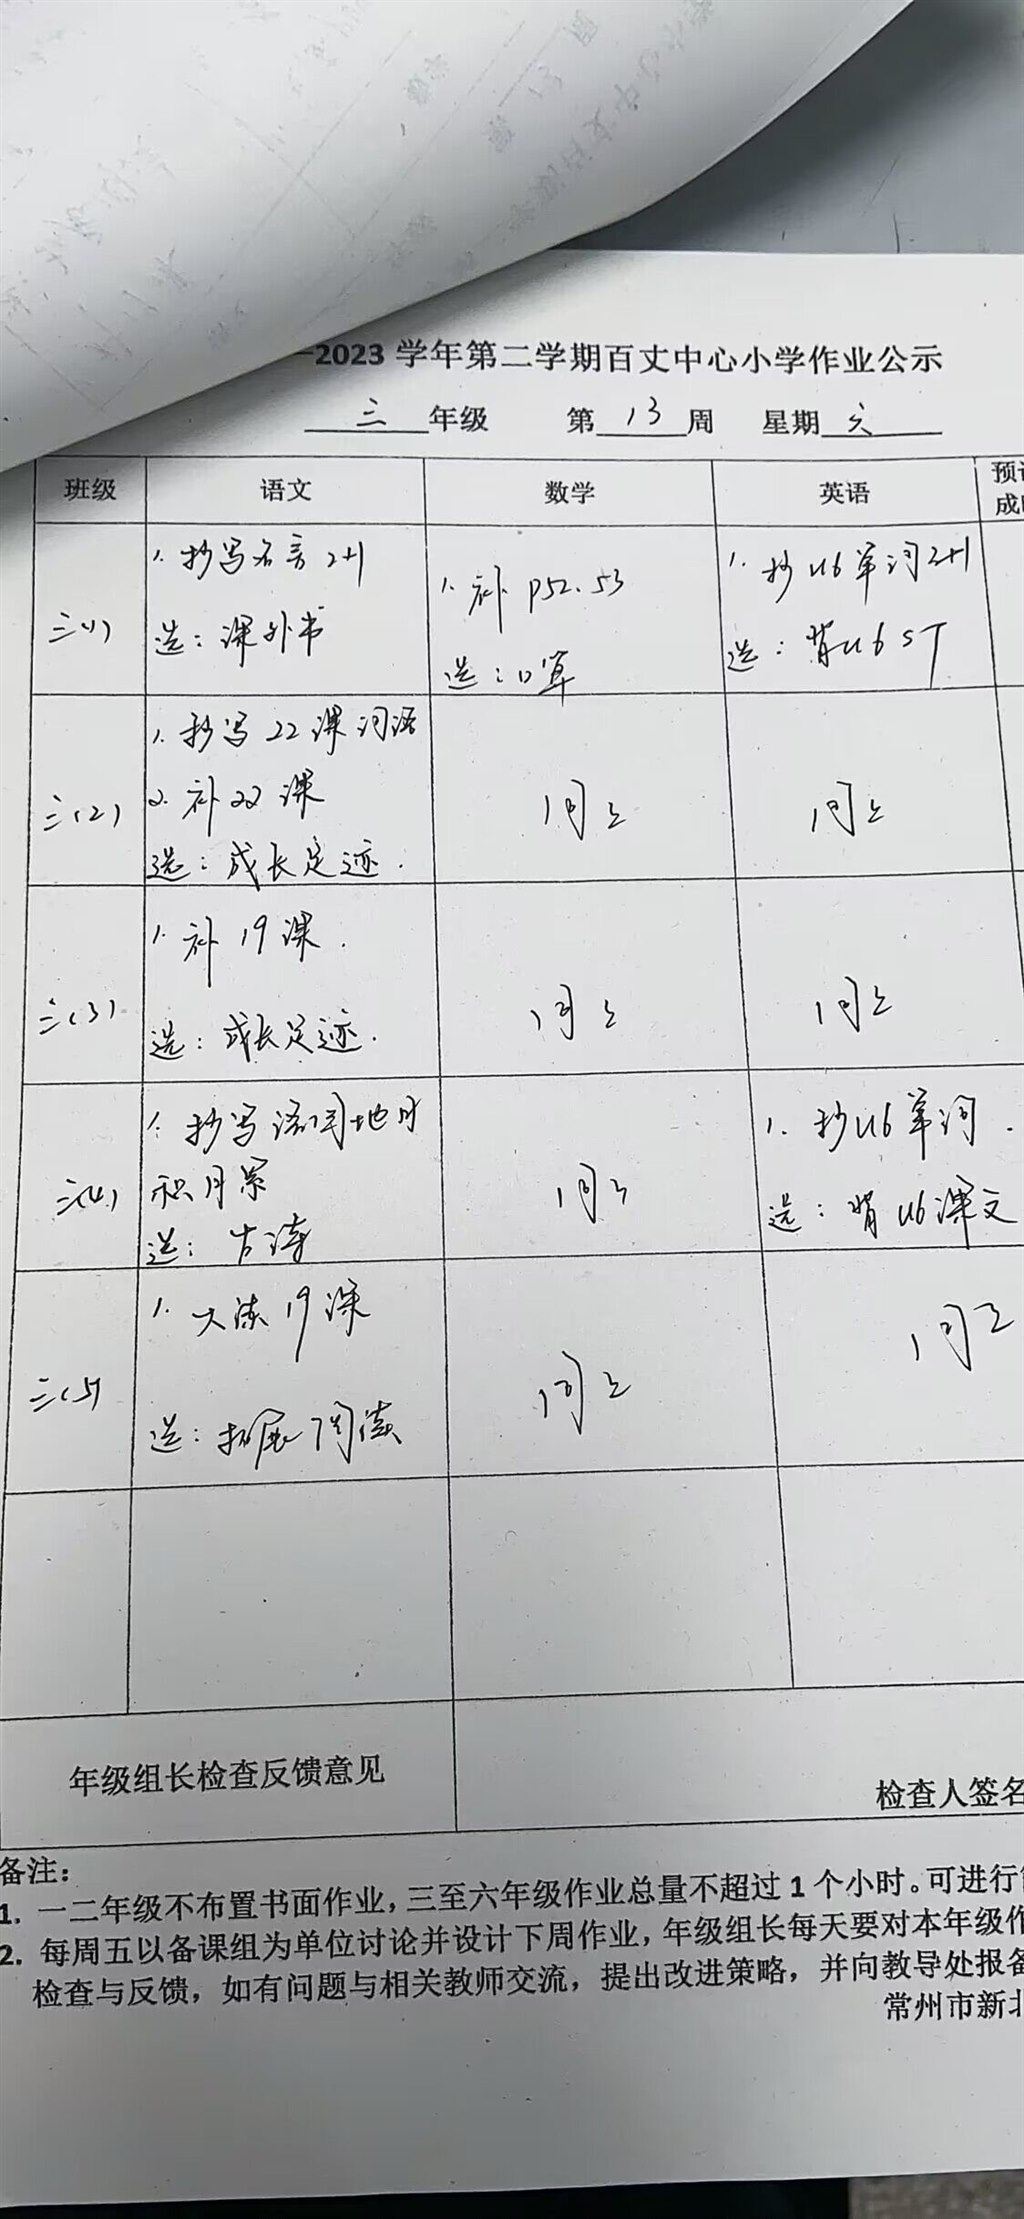 2023 学年第二学期百丈中心小学作业公示
三 年级 第 13 周 星期 六
班级 语文 数学 英语 预计
成时
三(1) 1. 抄写名言 2+1
选：课外书
1. 补 P52.53
选：口算
1. 抄U6单词2+1
选：背U6 ST
三(2) 1. 抄写 22 课词语
2. 补 22 课
选：成长足迹.
同上 同上
三(3) 1. 补 19 课.
选：成长足迹.
同上 同上
三(4) 1. 抄写语园地日
积月累
选：古诗
同上
1. 抄U6单词.
选：背U6课文
三(5) 1. 大练19课
选：拓展阅读
同上 同上
年级组长检查反馈意见
检查人签名
备注：
1. 一二年级不布置书面作业，三至六年级作业总量不超过 1 个小时。可进行
2. 每周五以备课组为单位讨论并设计下周作业，年级组长每天要对本年级作
检查与反馈，如有问题与相关教师交流，提出改进策略，并向教导处报备
常州市新北